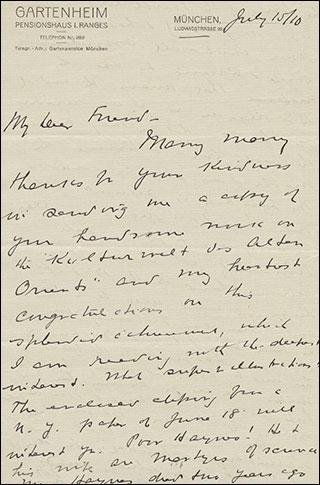 GARTENHEIM
PENSIONSHAUS I. RANGES
TELEPHON No. 289
Telegr.-Adr.: Gartenpension München
MÜNCHEN, July 15/10
LUDWIGSTRASSE 22
My dear Friend—
Many many
thanks for your kindness
in sending me a copy of
your handsome work on
the "Kulturwelt des Alten
Orients" and my heartiest
congratulations on this
splendid achievement, which
I am reading with the deepest
interest. What superb illustrations!
The enclosed clipping from a
N. Y. paper of June 18 will
interest you. Poor Haynes! He &
his wife are martyrs of science
Haynes died two years ago